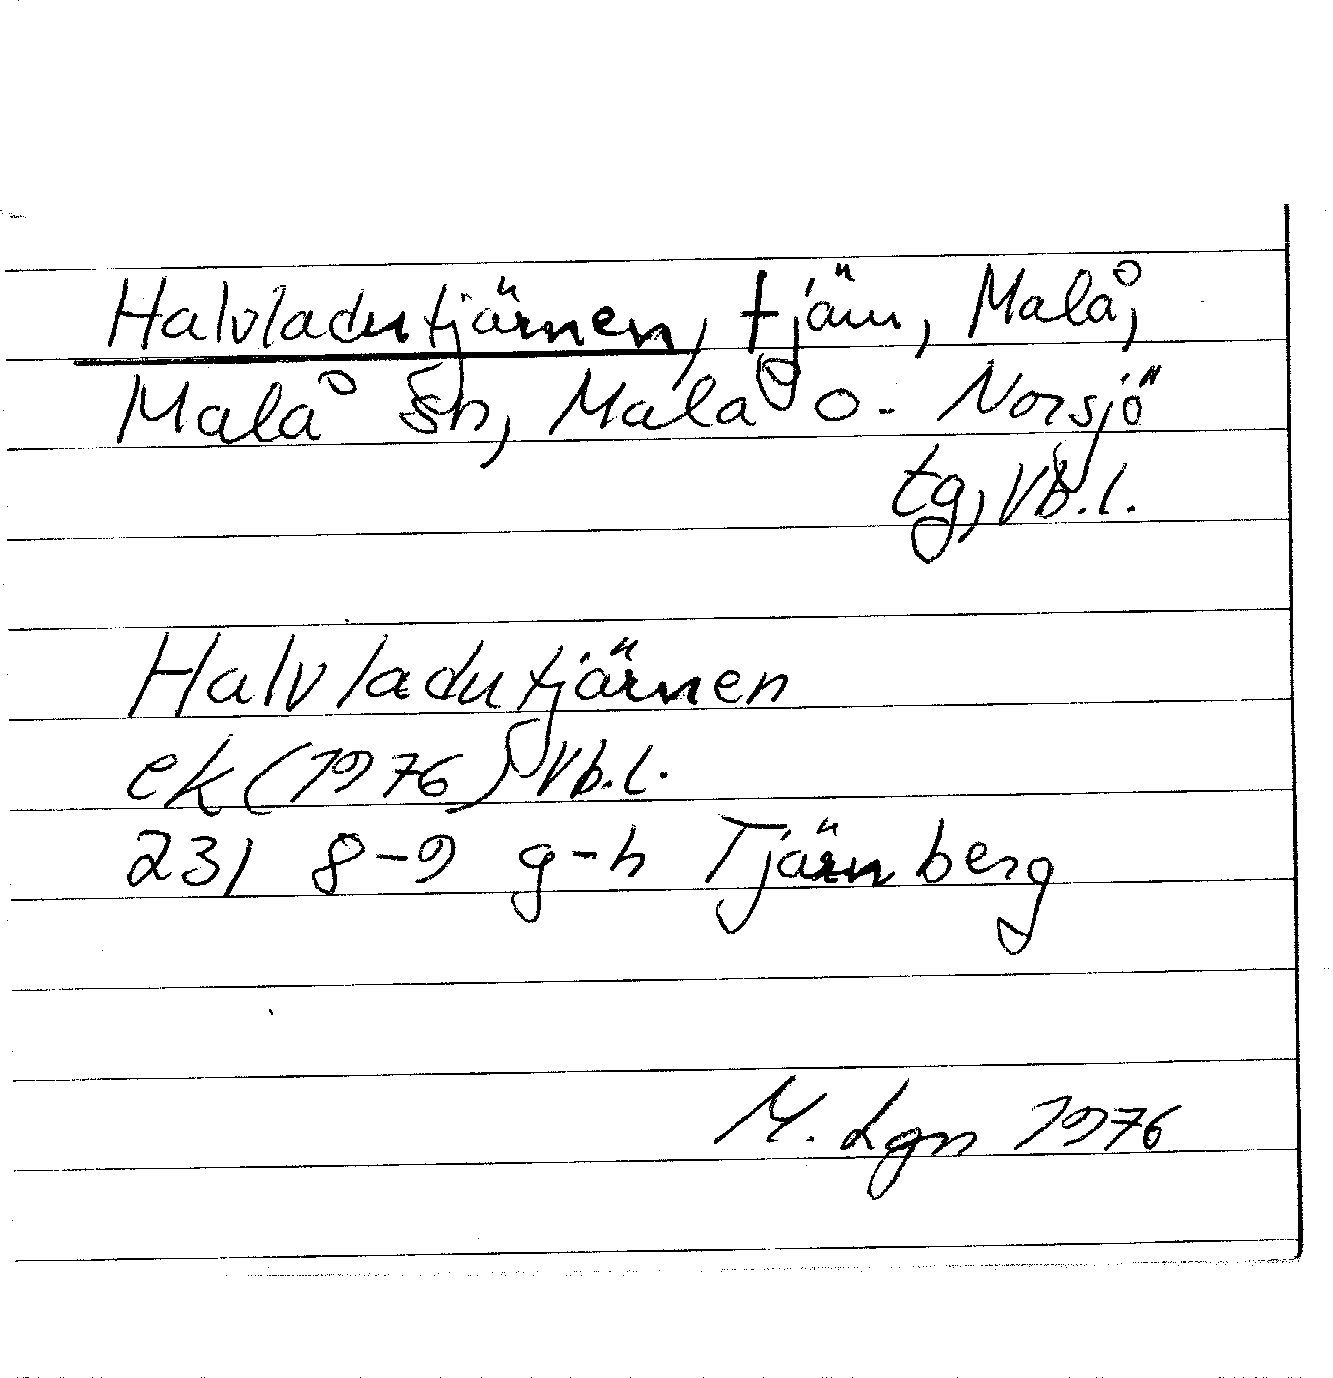 Halvladutjärnen, tjärn, Malå,
Malå sn, Malå o. Norsjö
tg, Vb.l.
Halvladutjärnen
ek (1976) Vb.l.
231 8-9 g-h Tjärnberg
M. Lgn 1976